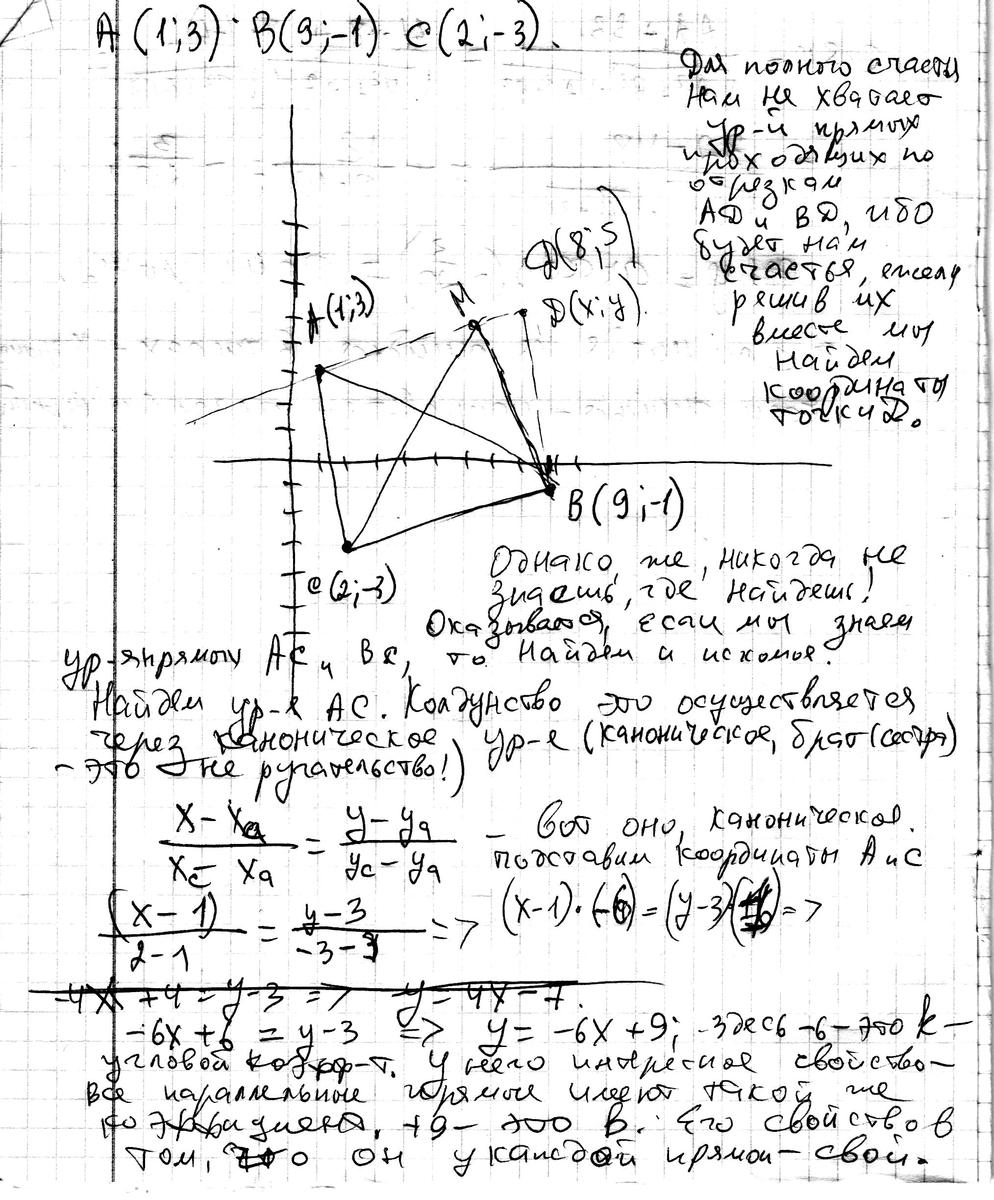 A (1;3) B(9;-1) C(2;-3).
Для полного счастья
нам не хватает
ур-й прямых
проходящих по
отрезкам
АД и ВД, ибо
будет нам
счастья, ежели
решив их
вместе мы
найдем
координаты
точки Д.
Д(8;5)
М
D(x;y)
A(1;3)
B(9;-1)
C(2;-3)
Однако же, никогда не
знаешь, где найдешь!
Оказывается, если мы знаем
ур-я прямых АС и ВС, то найдем и искомое.
Найдем ур-е АС. Колдунство это осуществляется
через каноническое ур-е (каноническое, брат(сестра)
- это не ругательство!)
(x - xa)/(xc - xa) = (y - ya)/(yc - ya) - вот оно, каноническое.
подставим координаты А и С
(x-1)/(2-1) = (y-3)/(-3-3) => (x-1)·(-6) = (y-3) =>
-4x+4 = y-3 => y=4x-7.
-6x+6 = y-3 => y = -6x+9; здесь -6 - это k -
угловой коэфф-т. У него интересное свойство -
все параллельные прямые имеют такой же
коэффициент, +9 - это b. Его свойство в
том, что он у каждой прямой - свой.